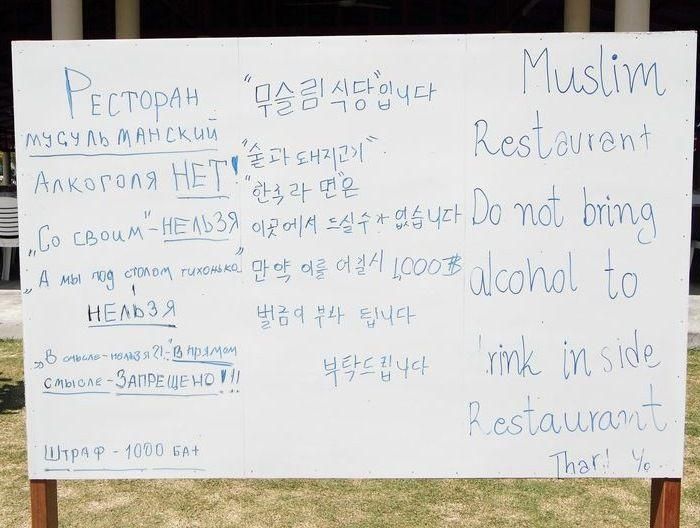 Ресторан
мусульманский
Алкоголя НЕТ!
„Со своим" - НЕЛЬЗЯ
„А мы под столом тихонько"
НЕЛЬЗЯ
„В смысле - нельзя?!" - В прямом
смысле - ЗАПРЕЩЕНО!!!
Штраф - 1000 бат
"무슬림 식당"입니다
"술과 돼지고기"
"한국라면"은
이곳에서 드실수가 없습니다
만약 이를 어길시 1,000฿
벌금이 부과 됩니다
부탁드립니다
Muslim
Restaurant
Do not bring
alcohol to
rink inside
Restaurant